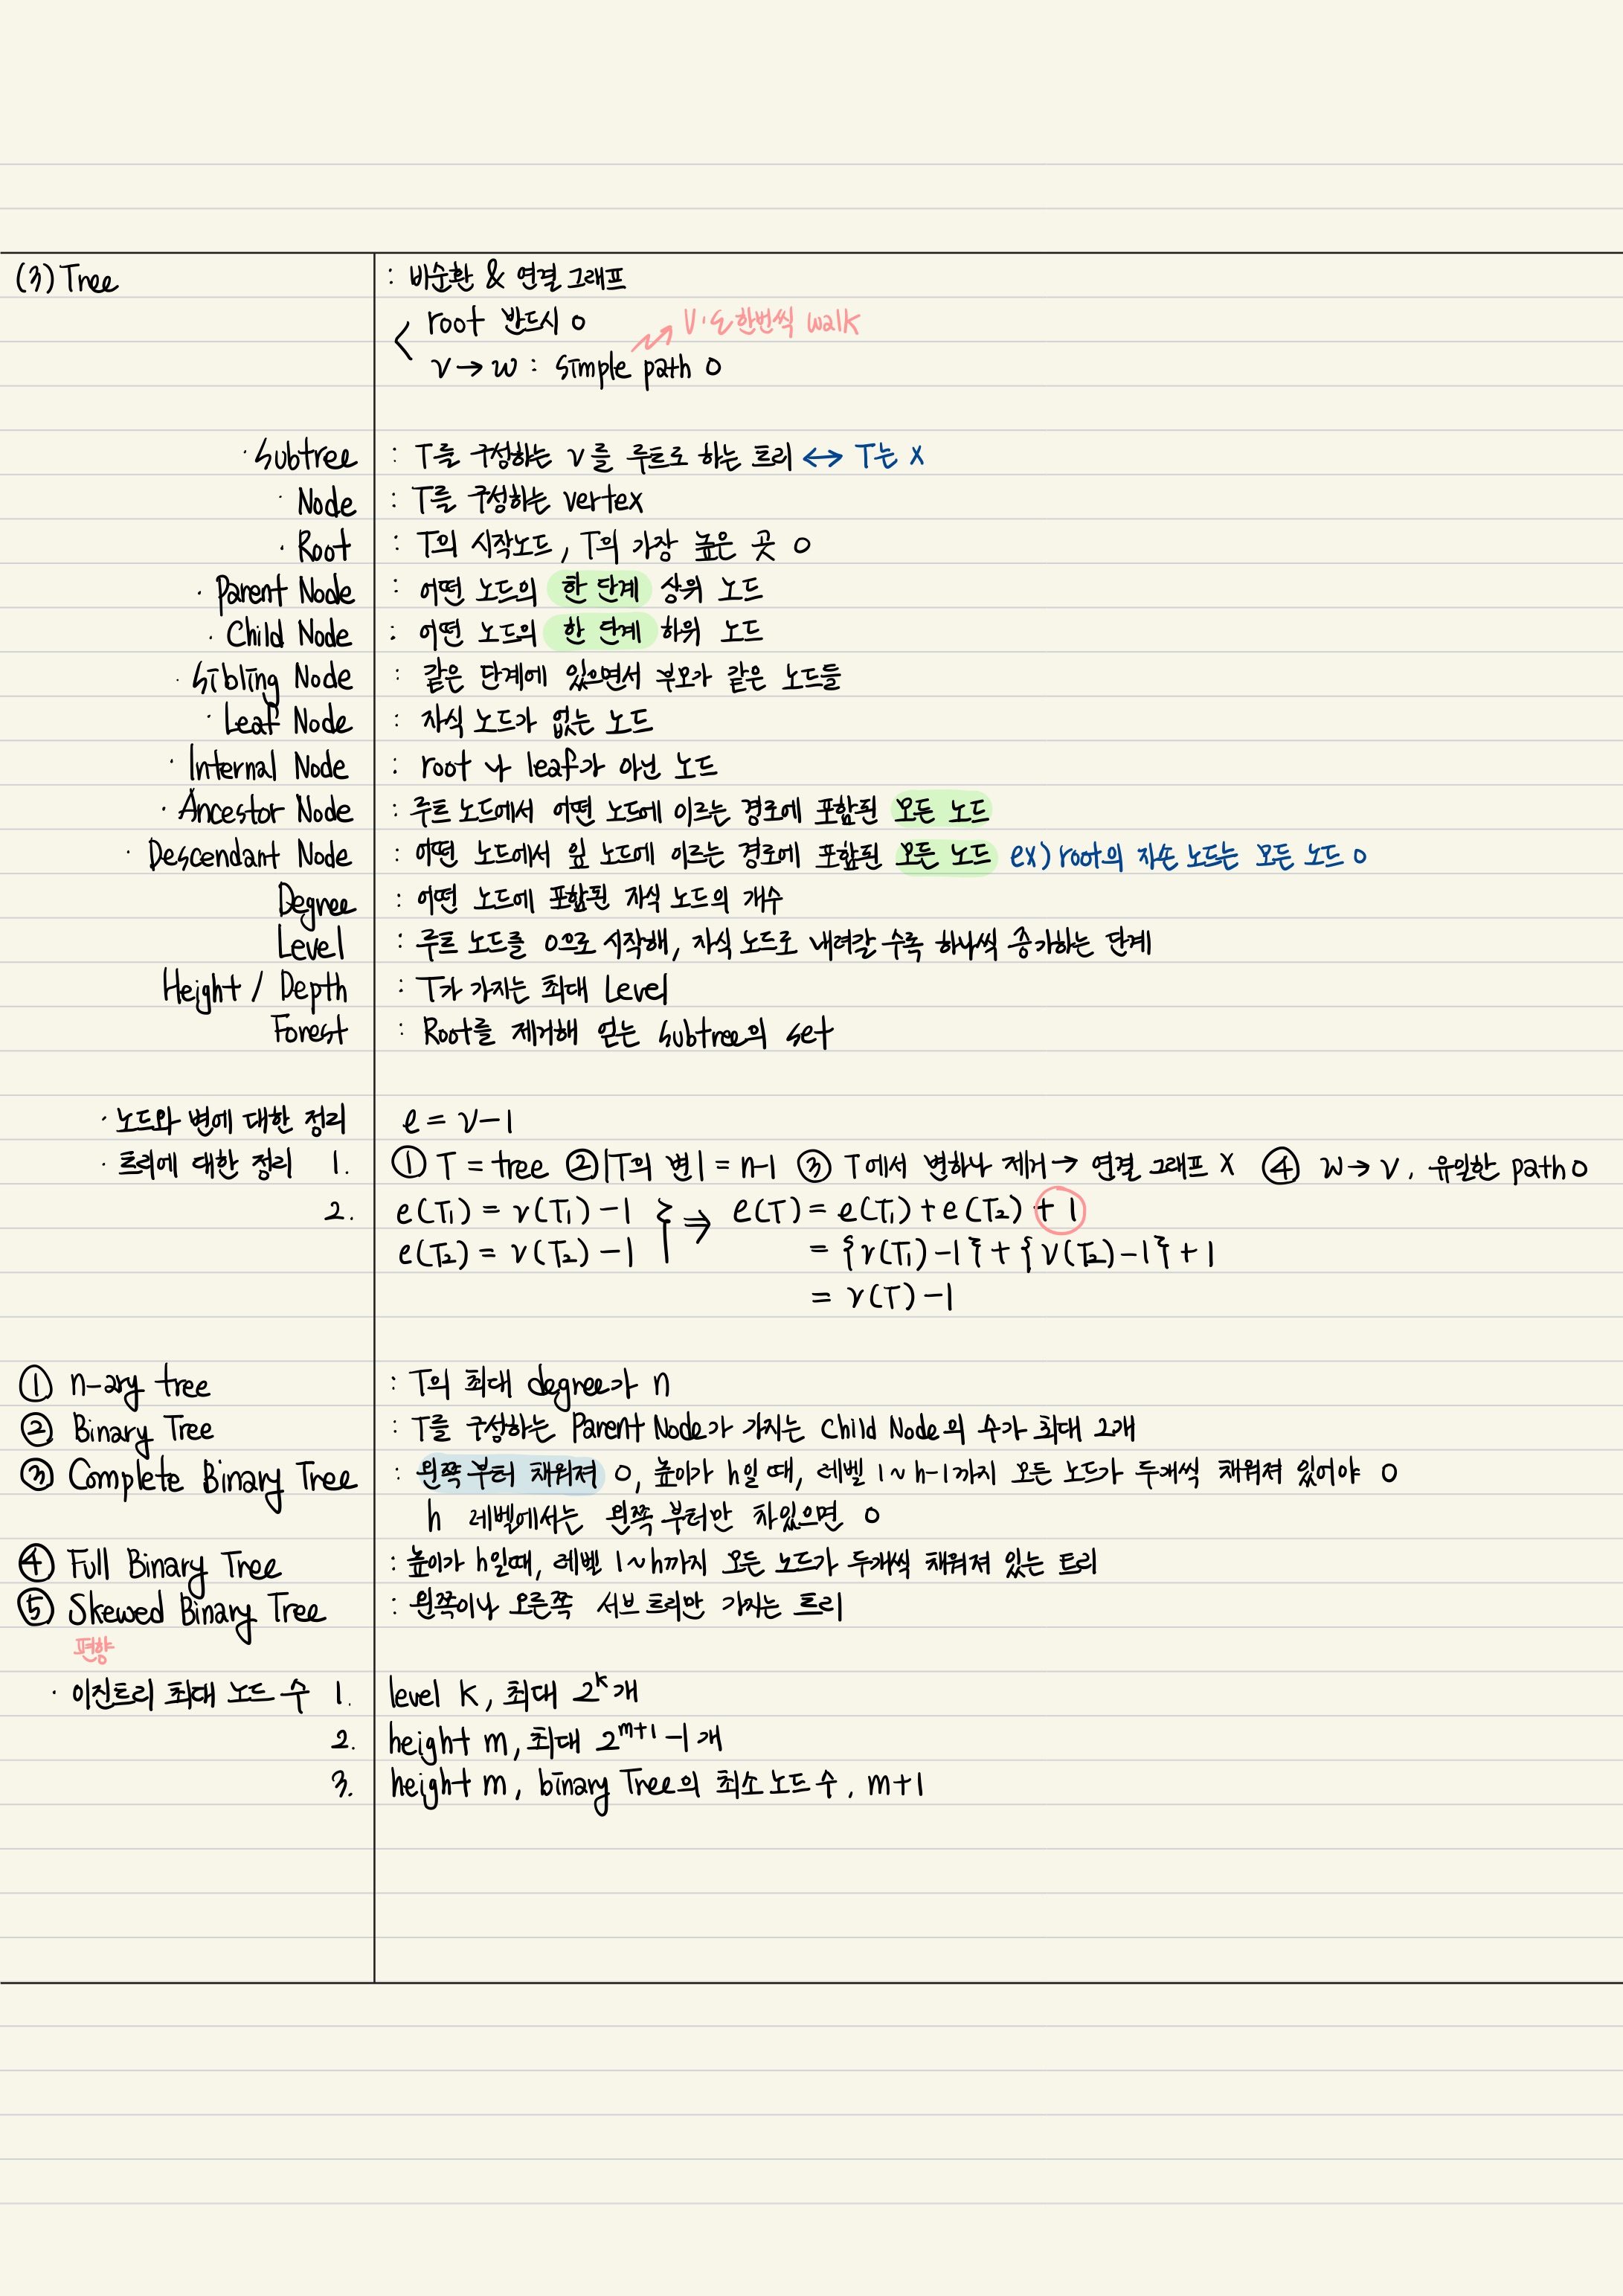 (3) Tree : 비순환 & 연결그래프
root 반드시 o
V·E 한번씩 walk
v → w : simple path o
· Subtree : T를 구성하는 v를 루트로 하는 트리 ↔ T는 x
· Node : T를 구성하는 vertex
· Root : T의 시작노드, T의 가장 높은 곳 o
· Parent Node : 어떤 노드의 한 단계 상위 노드
· Child Node : 어떤 노드의 한 단계 하위 노드
· Sibling Node : 같은 단계에 있으면서 부모가 같은 노드들
· Leaf Node : 자식 노드가 없는 노드
· Internal Node : root 나 leaf가 아닌 노드
· Ancestor Node : 루트 노드에서 어떤 노드에 이르는 경로에 포함된 모든 노드
· Descendant Node : 어떤 노드에서 잎 노드에 이르는 경로에 포함된 모든 노드 ex) root의 자손 노드는 모든 노드 o
Degree : 어떤 노드에 포함된 자식 노드의 개수
Level : 루트 노드를 0으로 시작해, 자식 노드로 내려갈 수록 하나씩 증가하는 단계
Height / Depth : T가 가지는 최대 Level
Forest : Root를 제거해 얻는 subtree의 set
· 노드와 변에 대한 정리 e = v-1
· 트리에 대한 정리 1. ① T = tree ② |T의 변| = n-1 ③ T에서 변하나 제거 → 연결 그래프 X ④ w → v, 유일한 path o
2. e(T₁) = v(T₁) -1 } ⇒ e(T) = e(T₁) + e(T₂) + 1
e(T₂) = v(T₂) -1 = {v(T₁) -1} + {v(T₂) -1} + 1
= v(T) -1
① n-ary tree : T의 최대 degree가 n
② Binary Tree : T를 구성하는 Parent Node가 가지는 Child Node의 수가 최대 2개
③ Complete Binary Tree : 왼쪽 부터 채워져 o, 높이가 h일 때, 레벨 1~h-1까지 모든 노드가 두개씩 채워져 있어야 o
h 레벨에서는 왼쪽 부터만 차있으면 o
④ Full Binary Tree : 높이가 h일때, 레벨 1~h까지 모든 노드가 두개씩 채워져 있는 트리
⑤ Skewed Binary Tree : 왼쪽이나 오른쪽 서브 트리만 가지는 트리
편향
· 이진트리 최대 노드 수 1. level k, 최대 2ᵏ개
2. height m, 최대 2ᵐ⁺¹ -1 개
3. height m, binary Tree의 최소 노드 수, m+1